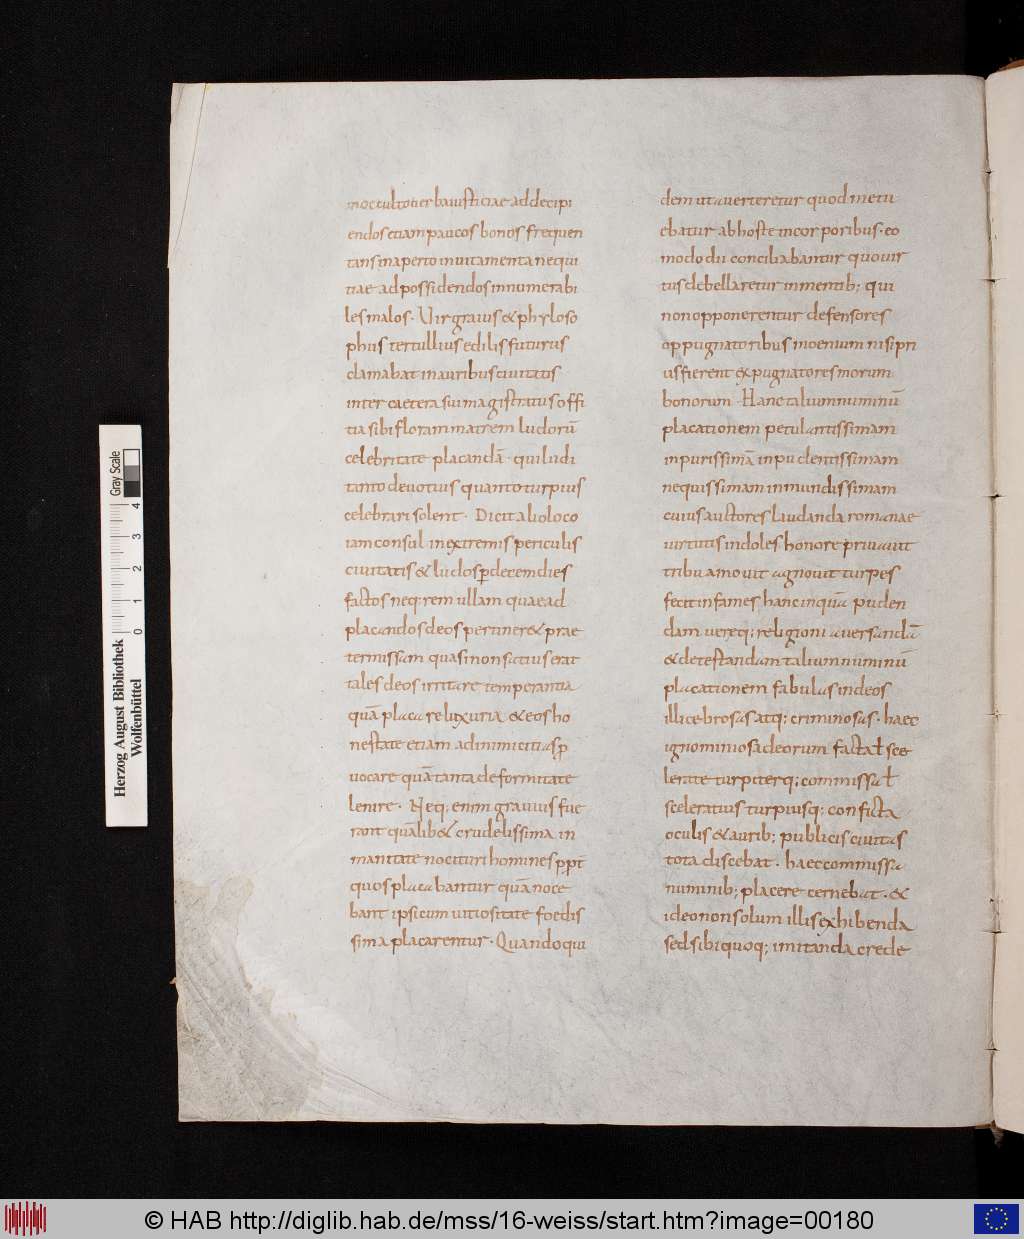 in occulto uerba iusticiae ad decipi
endos etiam paucos bonos frequen
tans in aperto inuitamenta nequi
tiae ad possidendos innumerabi
les malos. Vir grauis & phyloso
phus tertullius edilis futurus
clamabat in auribus ciuitatis
inter caetera sui magistratus offi
tia sibi floram matrem ludorū
celebritate placandā. qui ludi
tanto deuotius quanto turpius
celebrari solent. Dicit alio loco
iam consul in extremis periculis
ciuitatis & ludos ꝑ decem dies
factos neq; rem ullam quae ad
placandos deos pertiner& prae
termissam quasi non satius erat
tales deos irritare temperantia
quā placare luxuria & eos ho
nestate etiam ad inimicitias ꝓ
uocare quā tanta deformitate
lenire. Neq; enim grauius fue
rant qualib& crudelissima in
manitate nocituri homines ꝓpt
quos placabantur quā noce
bant ipsi cum uitiositate foedis
sima placarentur. Quando qui
dem ut auerteretur quod metu
ebatur ab hoste in corporibus. eo
modo dii conciliabantur quo uir
tus debellaretur in mentib; qui
non opponerentur defensores
oppugnatoribus moenium nisi pri
us fierent expugnatores morum
bonorum. Hanc talium numinū
placationem petulantissimam
inpurissimā inpudentissimam
nequissimam inmundissimam
cuius auctores laudanda romanae
uirtutis indoles honore priuauit
tribu amouit agnouit turpes
fecit infames hanc inquā puden
dam uereq; religioni auersandā
& detestandam talium numinū
placationem fabulas in deos
illicebrosas atq; criminosas. haec
ignominiosa deorum facta ł sce
lerate turpiterq; commissa ł
sceleratius turpiusq; conficta
oculis & aurib; publicis ciuitas
tota discebat. haec commissa
numinib; placere cernebat. &
ideo non solum illis exhibenda
sed sibi quoq; imitanda crede
Herzog August Bibliothek
Wolfenbüttel
0 1 2 3 4
Gray Scale
© HAB http://diglib.hab.de/mss/16-weiss/start.htm?image=00180